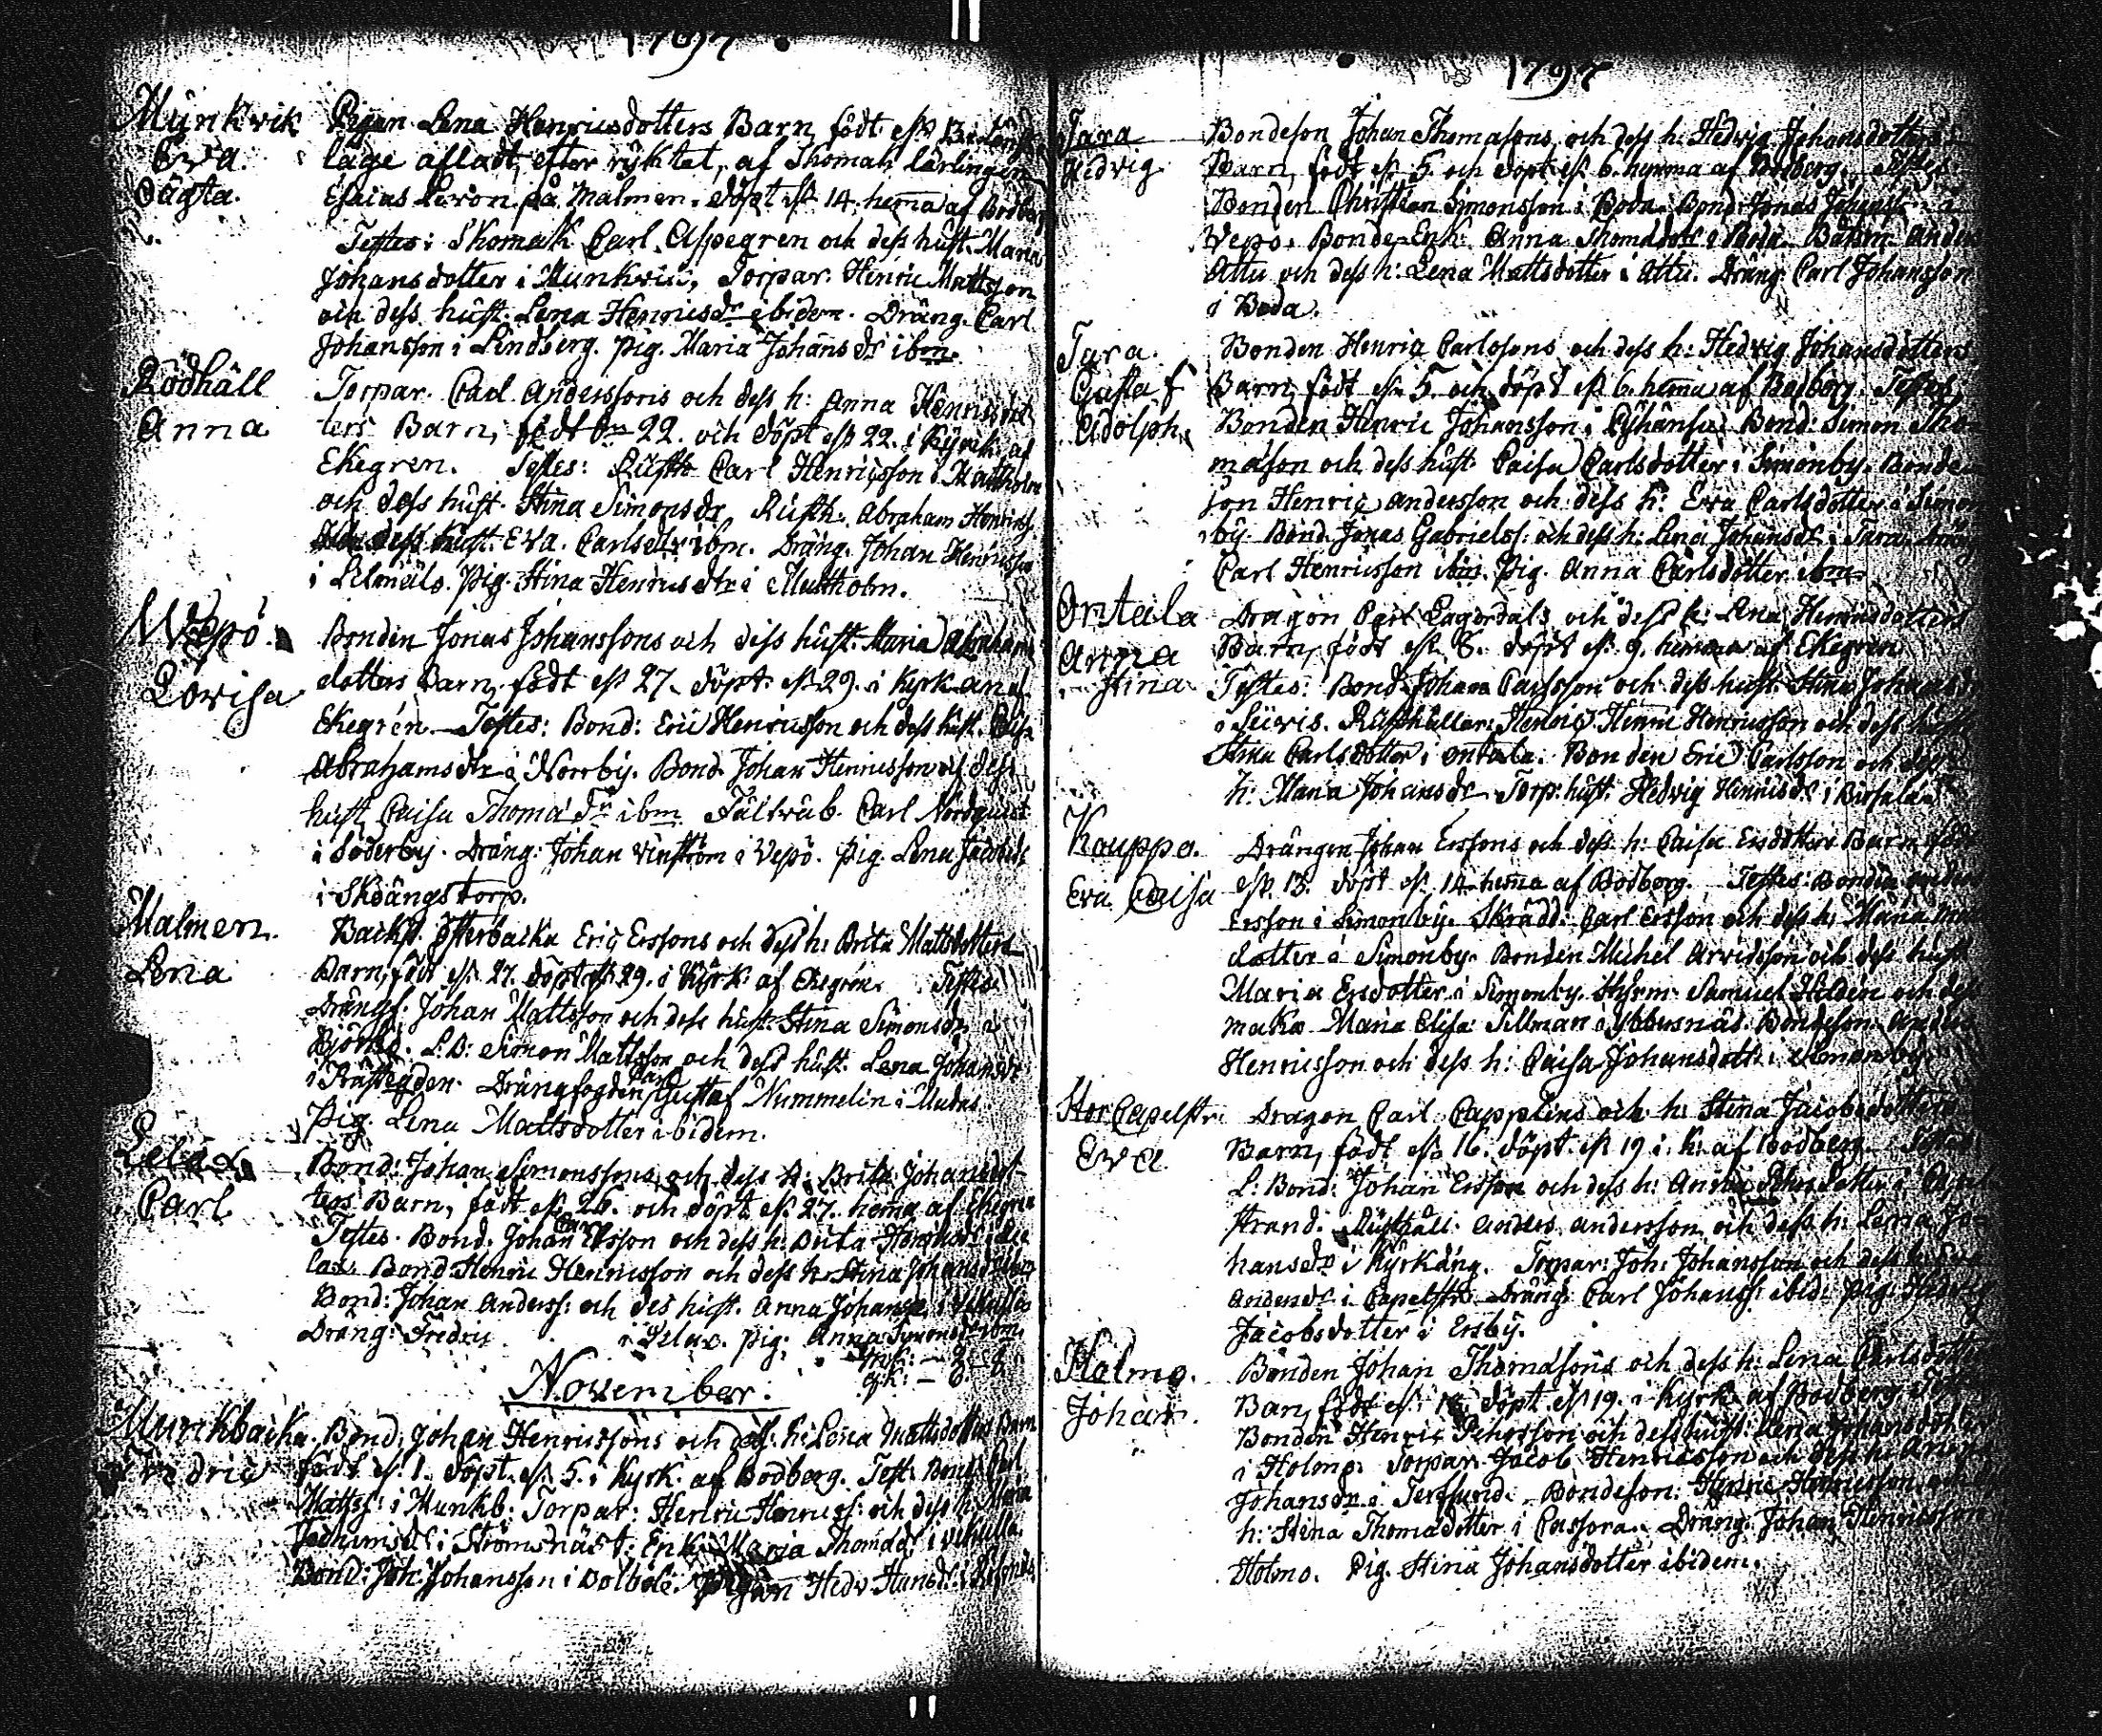 1797
Munkvik Pigan Lena Henricsdotters Barn, födt
Eva läge afladt, efter ryktet, af Skomak. lärlingen
Oägta. Esaias Leron på Malmen. döpt d. 14. hema af Bodberg
Testes: Skomak Carl Aspegren och dess hust. Maria
Johansdotter i Munkvik, Torpar. Henric Mattsson
och dess hust. Lena Henricsdr ibidem. Dräng. Carl
Johansson i Lindberg. Pig. Maria Johans dr ibm.
Rödhäll Torpar. Carl Anderssons och dess h: Anna Henricsdot
Anna ters Barn, födt d. 22. och döpt d. 22. i Kyrck. af
Ekegren. Testes: Rusth. Carl Henricsson i Mattholm
och dess hust. Stina Simonsdr, Rusth. Abraham Henricss.
dess hust. Eva. Carlsdtr ibm. Dräng. Johan Henricsson
i Lilmälö. Pig. Stina Henricsdtr i Mattholm.
Wepö. Bonden Jonas Johanssons och dess hust. Maria Abrahams
Lovisa dotters Barn, födt d. 27. döpt d. 29. i Kyrkan af
Ekegren. Testes: Bond: Eric Henricsson och dess hust.
Abrahamsdtr i Norrby. Bond. Johan Henricsson och dess
hust Caisa Thomædr ibm. Fältväb. Carl Nordquist
i Söderby. Dräng: Johan Vinström i Vepö. Pig. Lena Jacobsdr
i Skoängstorp.
Malmen. Backst. Österbacka Eric Erssons och dess h: Brita Mattsdotters
Lena Barn, födt d. 27. döpt d. 29. i Kyrk. af Ekegren. Testes
Drängs. Johan Mattsson och dess hust. Stina Simonsdr i
Björkö. L: B: Simon Mattsson och dess hust. Lena Johansdr
i Prästegården. Drängfogden Carl Gustaf Nummelin i
Pig. Lena Mattsdotter ibidem.
Lelax Bond: Johan Simonssons och dess h: Brita Johansdot-
Carl ters Barn, födt d. 26. och döpt d. 27. hema af Ekegren
Testes. Bond. Johan Carlsson och dess h: Brita Henricsdr i Le
lax Bond: Henric Henricsson och dess h: Stina Johansdotter
Bond: Johan Anderss: och des hust. Anna Johansdr i
Dräng: Fredric i Lelax. Pig: Anna Simonsdr ibm.
mk: – 8.
qk: – 6.
November.
Munkbacka. Bond: Johan Henricssons och dess h: Lena Mattsdotters Barn
Fredric födt d. 1. döpt d. 5. i Kyrk. af Bodberg. Test: Bond. Carl
Mattss: i Munkb: Torpar: Henric Henricss: och dess h: Maria
Jochimsdr i Strömsnäst. Enk. Maria Thomædr i
Bond: Joh: Johansson i Dolböle. Pigan Hedv. Hansdr i
1797
Tara Bondeson Johan Thomassons och dess h: Hedvig Johansdotters
Hedvig Barn, födt d. 5. och döpt d. 6. hemma af Bodberg. Testes
Bonden Christian Simonsson i Boda. Bond: Jonas Johanss: i
Vepö. Bonde-Enk: Anna Thomædotr i Boda. Båtsm. Anders
Attu och dess h: Lena Mattsdotter i Attu. Dräng. Carl Johansson
i Boda.
Tara. Bonden Henric Carlssons och dess h: Hedvig Johansdotters
Gustaf Barn, födt d. 5. och döpt d. 6. hema af Bodberg. Testes
Adolph. Bonden Henric Johansson i Bond: Simon Tho-
masson och dess hust. Caisa Carlsdotter i Simonby. Bonde
son Henric Andersson och dess h: Eva Carlsdotter i Simon
by. Bond. Jonas Gabrielss: och dess h: Lena Johansdr i Tara. Dräng
Carl Henricsson ibm. Pig. Anna Carlsdotter ibm.
Ontala Dragon Carl Lagerdals och dess h: Lena Henricsdotters
Anna Barn, födt d. 8. döpt d. 9. hemma af Ekegren
Stina Testes: Bond. Johan Carlsson och dess hust. Stina Johansdr
i Levris. Rusthållar. Henric Henricsson och dess hust
Stina Carlsdotter i Ontala. Bonden Eric Carlsson och dess
h: Maria Johansdr Torp. hust. Hedvig Henricsdr i
Kouppo. Drängen Johan Erssons och dess h: Caisa Ersdotters Barn födt
Eva Caisa d. 13. döpt d. 14 hema af Bodberg. Testes: Bonden Anders
Ersson i Simonby. Skrädd: Carl Ersson och dess h: Maria Mats
dotter i Simonby. Bonden Michel Arvidsson och dess hust
Maria Ersdotter i Simonby. Samuel Helden och dess
maka Maria Elisa Sillman i Ybbersnäs. Bondeson Anders
Henricsson och dess h: Caisa Johansdott: i Simonby.
Stor Capelstr. Dragon Carl Capplins och h: Stina Jacobsdotters
Eva Barn, födt d. 16. döpt d. 19 i k. af Bodberg. Testes
L: Bond: Johan Ersson och dess h: Anna dotter i Capel
strand. Rusthåll: Anders Andersson och dess h: Lena Jo-
hansdr i Kyrkäng. Torpar: Joh: Johansson och dess h:
Andersdr i Capelstr. Dräng: Carl Johanss: ibid: Pig: Hedvig
Jacobsdotter i Ersby.
Holmo. Bonden Johan Thomassons och dess h: Lena Carlsdotters
Johan. Barn, födt d. döpt d. 19. i Kyrk. af Bodberg. Testes
Bonden Henric Pehrsson och dess hust: Lena Johansdotter
i Holmo. Torpar. Jacob Henricsson och dess h: Anna
Johansdr i Tersund. Bondeson: Henric Henricsson
h: Stina Thomædotter i Corpora. Dräng. Johan Henricsson
Holmo. Pig. Stina Johansdotter ibidem.